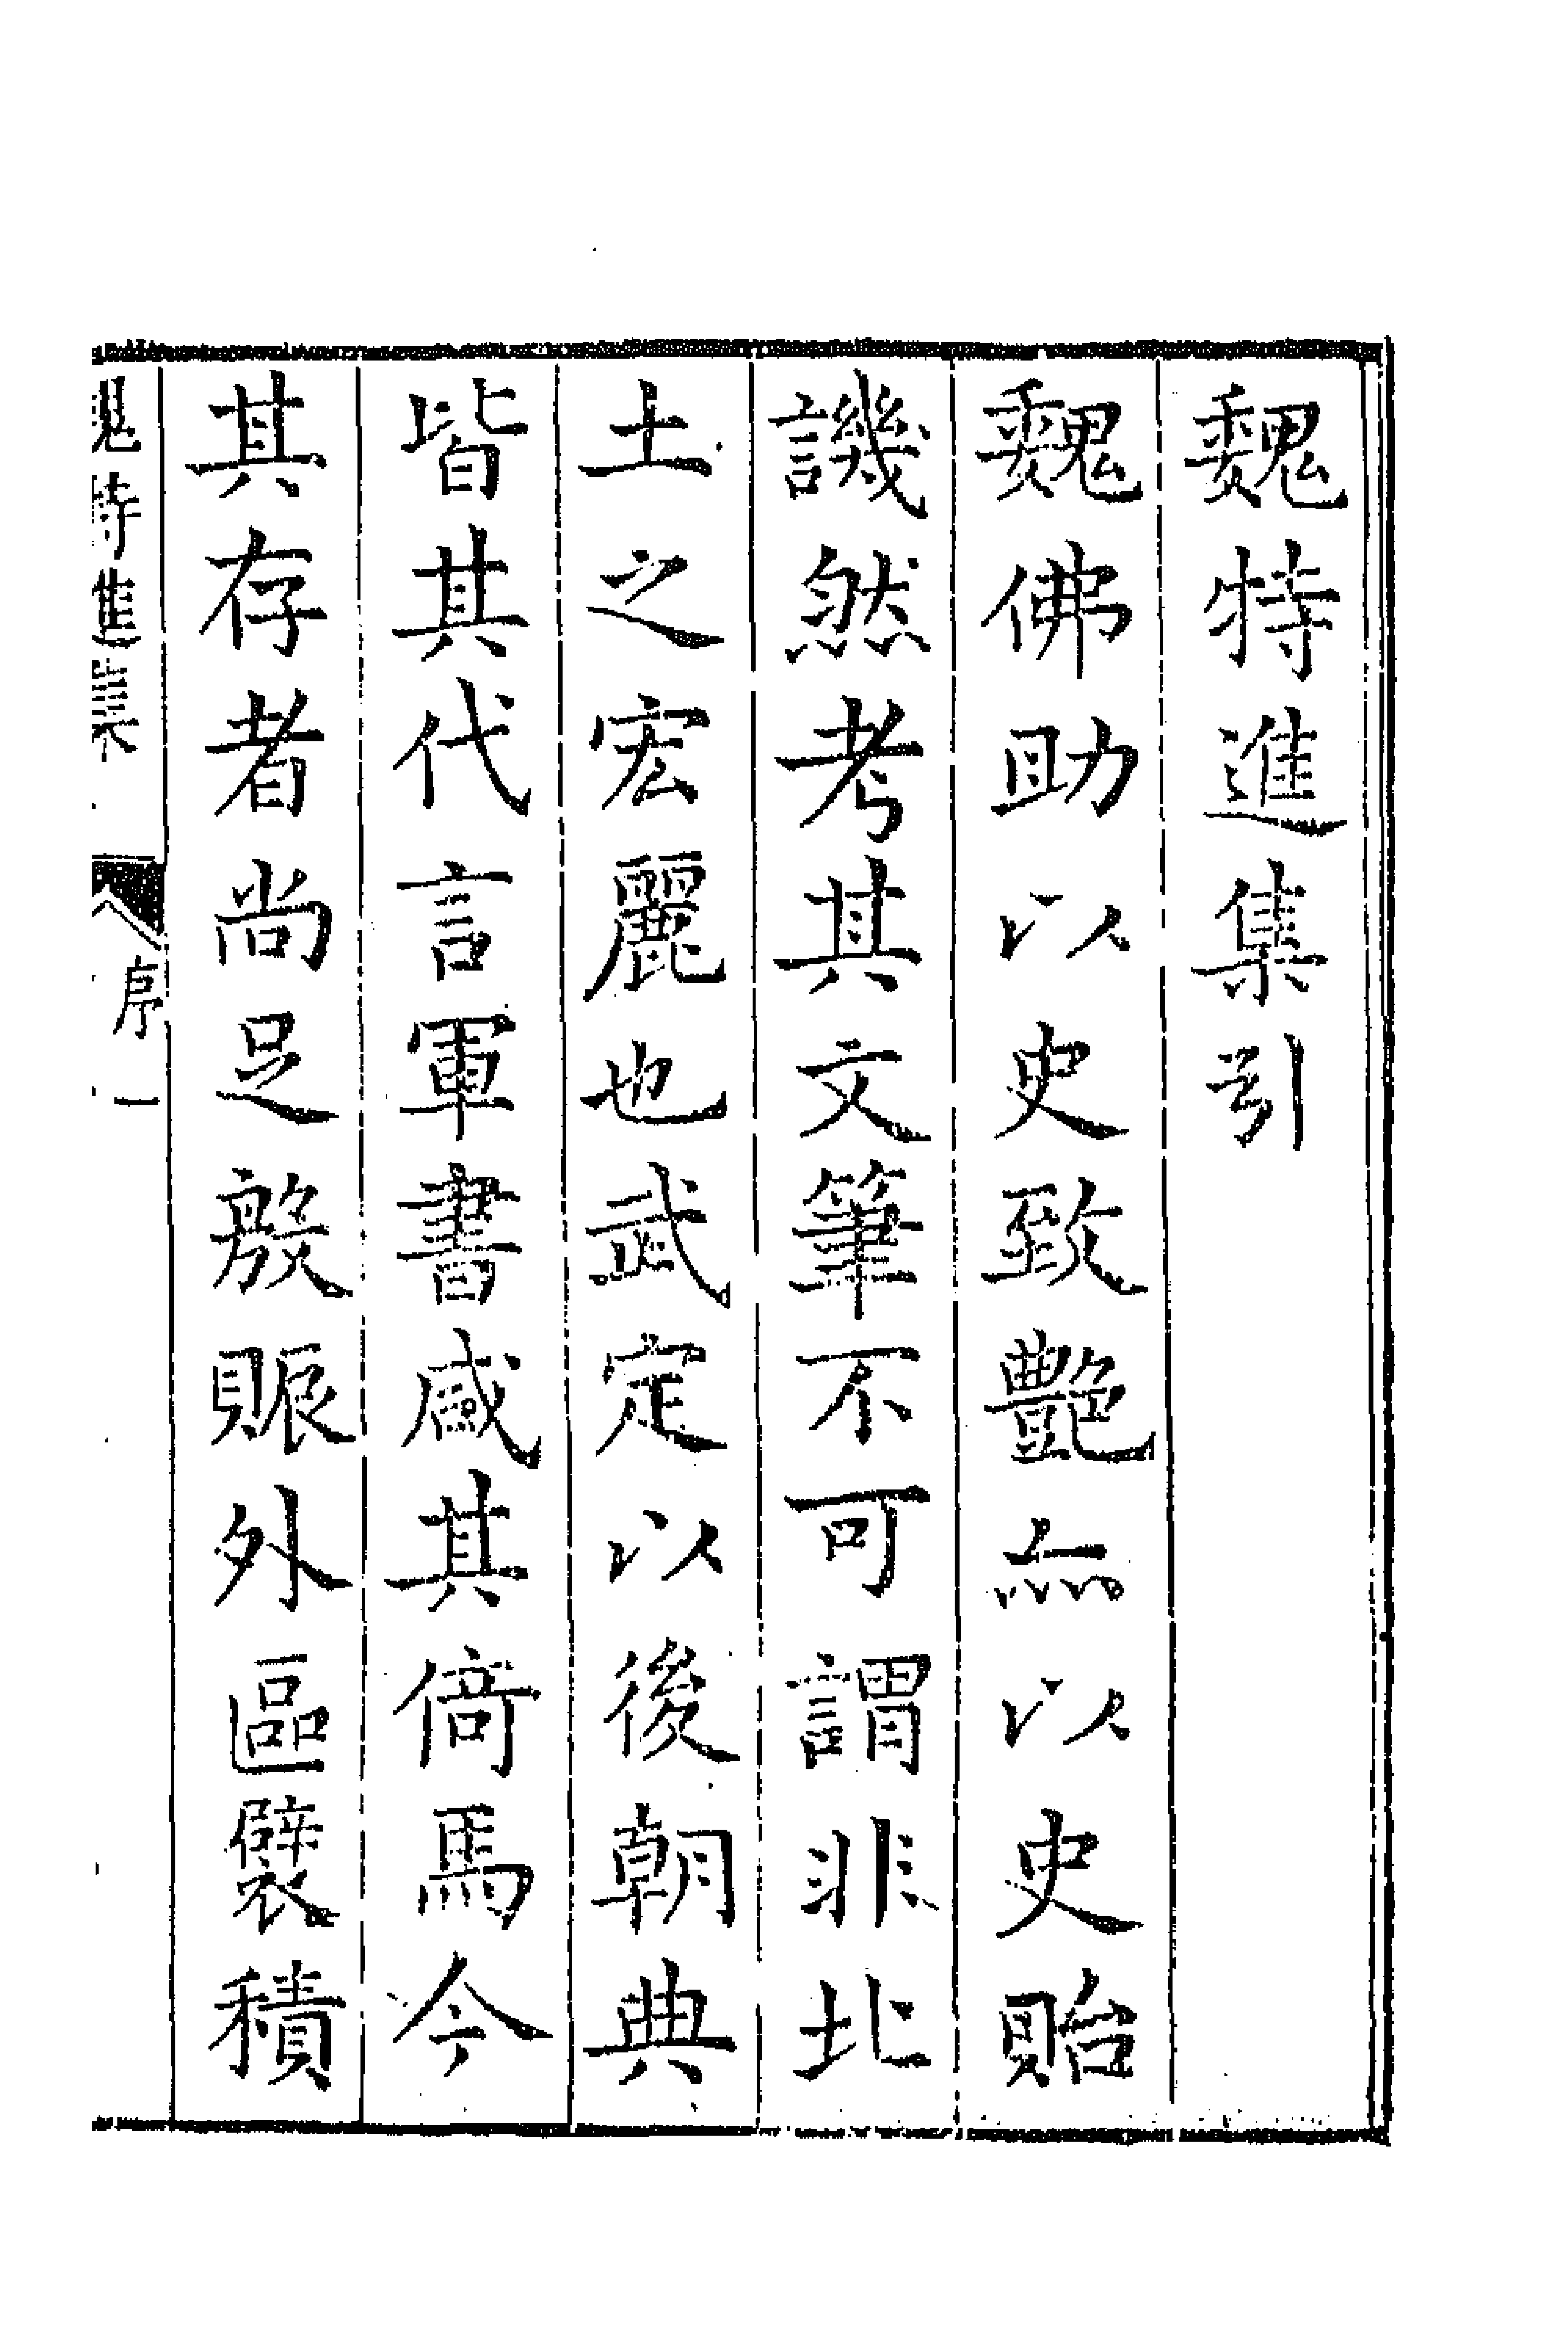 魏特進集引
魏佛助以史致艶亦以史貽
譏然考其文筆不可謂非北
土之宏麗也武定以後朝典
皆其代言軍書咸其倚馬今
其存者尚足殷賑外區襞積
魏特進集 序 一